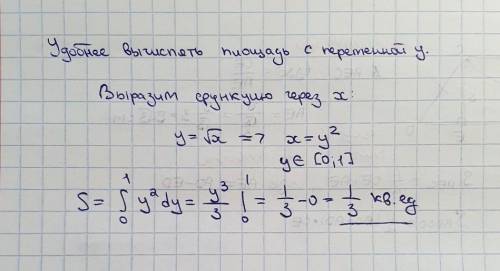 Удобнее вычислять площадь с переменной y.
Выразим функцию через x:
y = √x => x = y²
y ∈ [0,1]
S = ∫₀¹ y² dy = y³/3 |₀¹ = 1/3 - 0 = 1/3 кв. ед